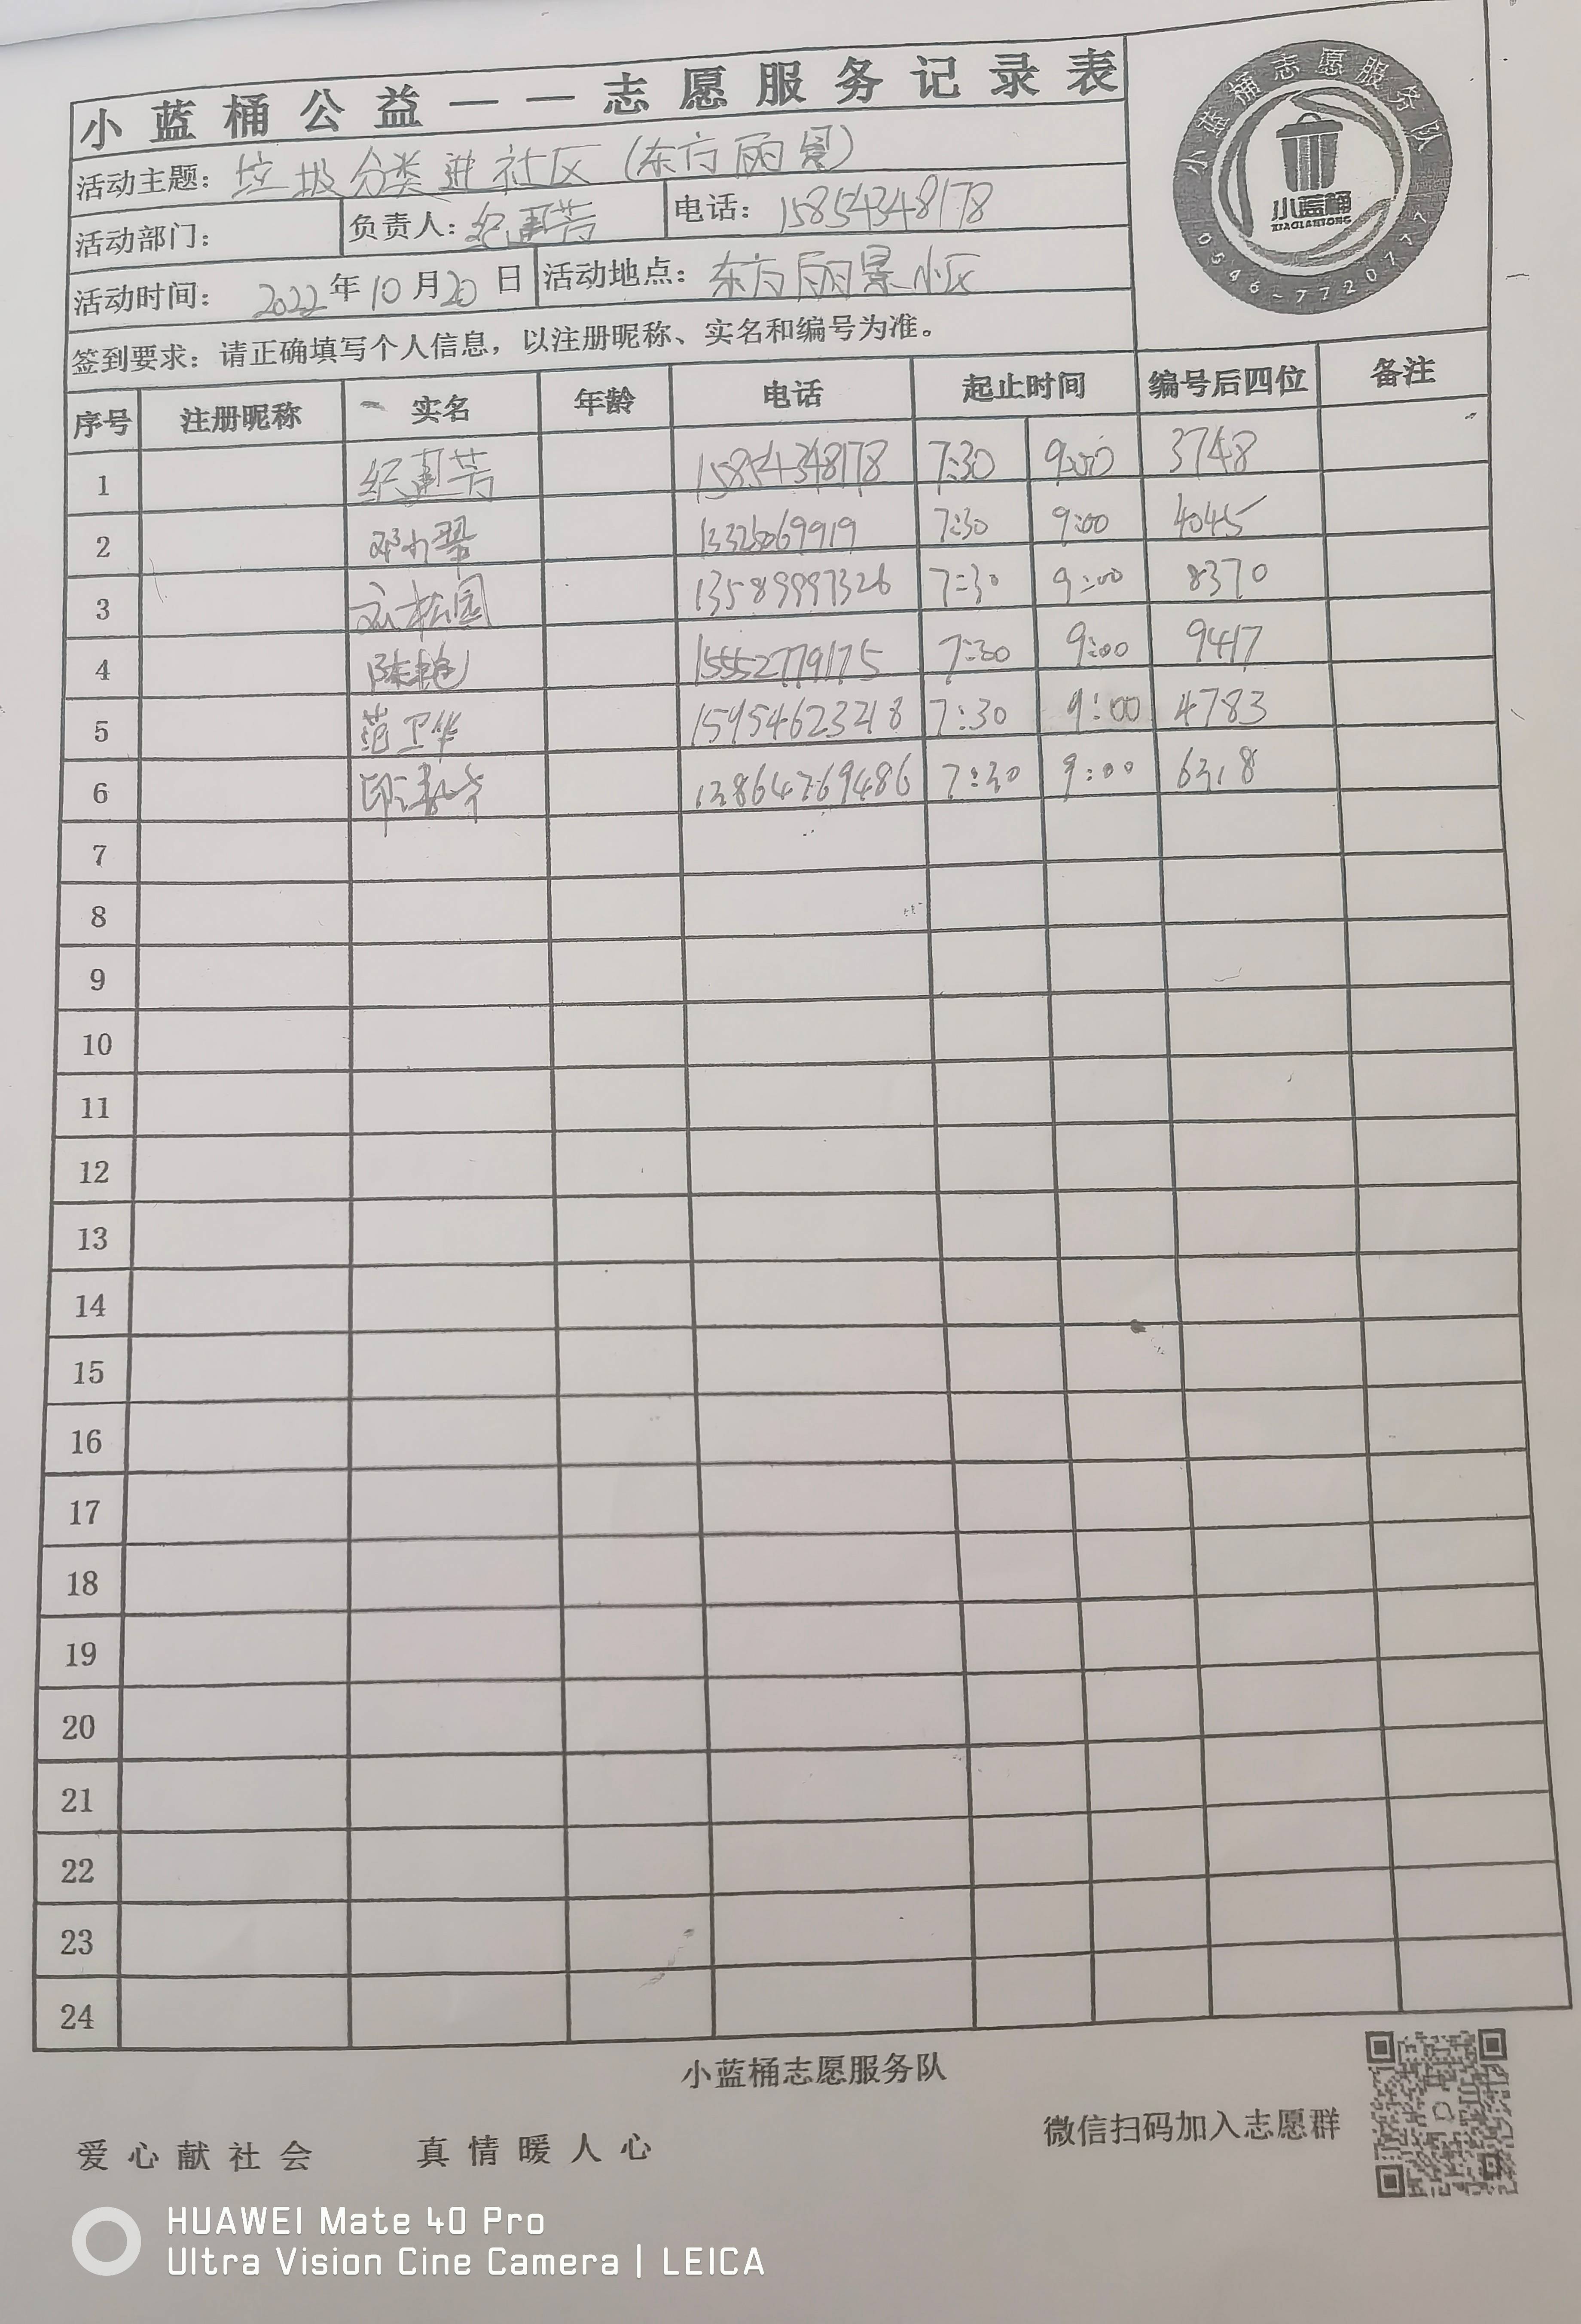 小蓝桶公益——志愿服务记录表
活动主题：垃圾分类进社区（东方丽景）
活动部门： 负责人： 电话：15854348178
活动时间：2022年10月20日 活动地点：东方丽景小区
签到要求：请正确填写个人信息，以注册昵称、实名和编号为准。
小蓝桶志愿服务队
小蓝桶
XIAOLANTONG
0546-7720777
序号 注册昵称 实名 年龄 电话 起止时间 编号后四位 备注
1 15854348178 7:30 9:00 3748
2 7:30 9:00 4045
3 13589997326 7:30 9:00 8370
4 陈艳 15552779175 7:30 9:00 9417
5 范卫华 15954623218 7:30 9:00 4783
6 7:30 9:00
7
8
9
10
11
12
13
14
15
16
17
18
19
20
21
22
23
24
小蓝桶志愿服务队
微信扫码加入志愿群
爱心献社会 真情暖人心
HUAWEI Mate 40 Pro
Ultra Vision Cine Camera | LEICA